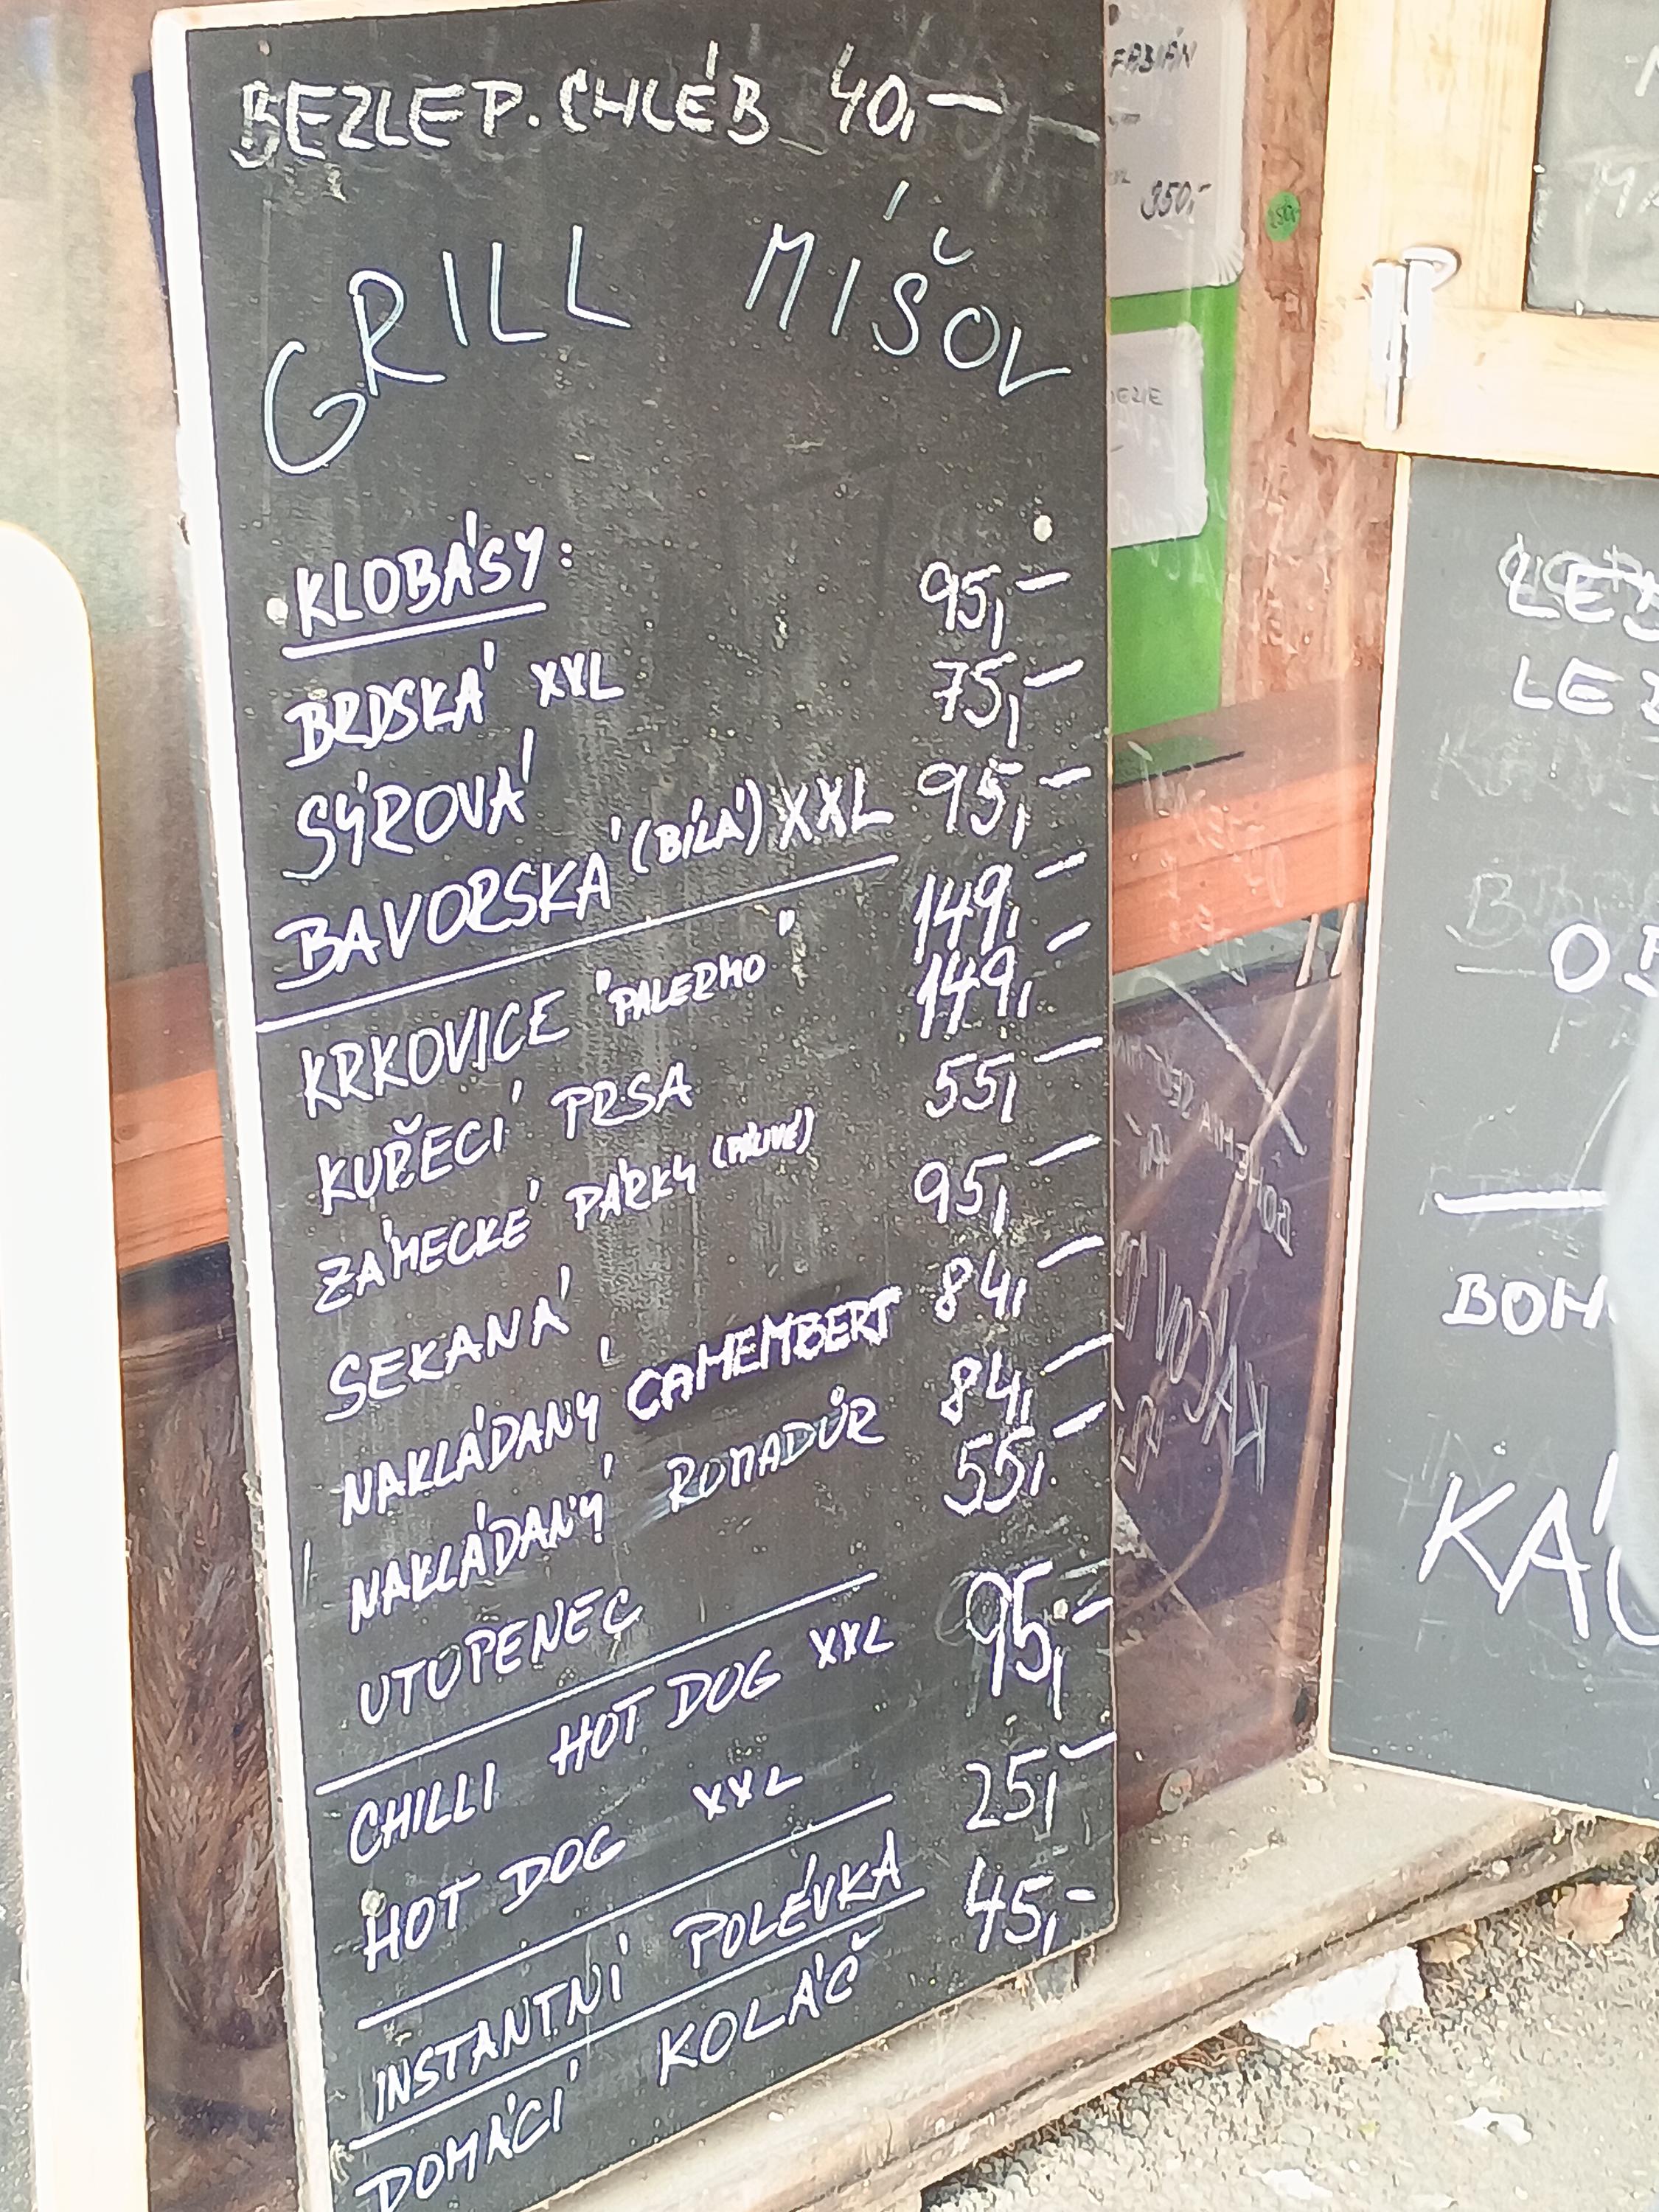 BEZLEP. CHLÉB 40,-
GRILL MÍŠOV
KLOBÁSY:
BRDSKÁ XXL 95,-
SÝROVÁ 75,-
BAVORSKÁ (BÍLÁ) XXL 95,-
KRKOVICE "PALERMO" 149,-
KUŘECÍ PRSA 149,-
ZÁMECKÉ PÁRKY (PÁLIVÉ) 55,-
SEKANÁ 95,-
NAKLÁDANÝ CAMEMBERT 84,-
NAKLÁDANÝ ROMADŮR 84,-
UTOPENEC 55,-
CHILLI HOT DOG XXL
HOT DOG XXL 95,-
INSTANTNÍ POLÉVKA 25,-
DOMÁCÍ KOLÁČ 45,-
FABIÁN
350,-